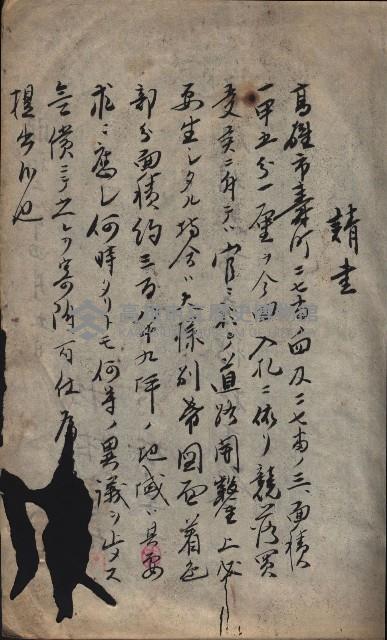 請書
高雄市壽町二七番ノ四及二七番ノ三、面積
一甲五分一厘ヲ今回入札ニ依リ競落買
受候ニ付テハ官ニ於テ道路開鑿上必
要生シタル場合ハ大樣別帋圖面ノ着色
部分面積約三百十九坪ノ地域ハ其要
求ニ應シ何時タリトモ何等ノ異議ヲ止メス
無償ニテ之ヲ寄附可仕
提出候也